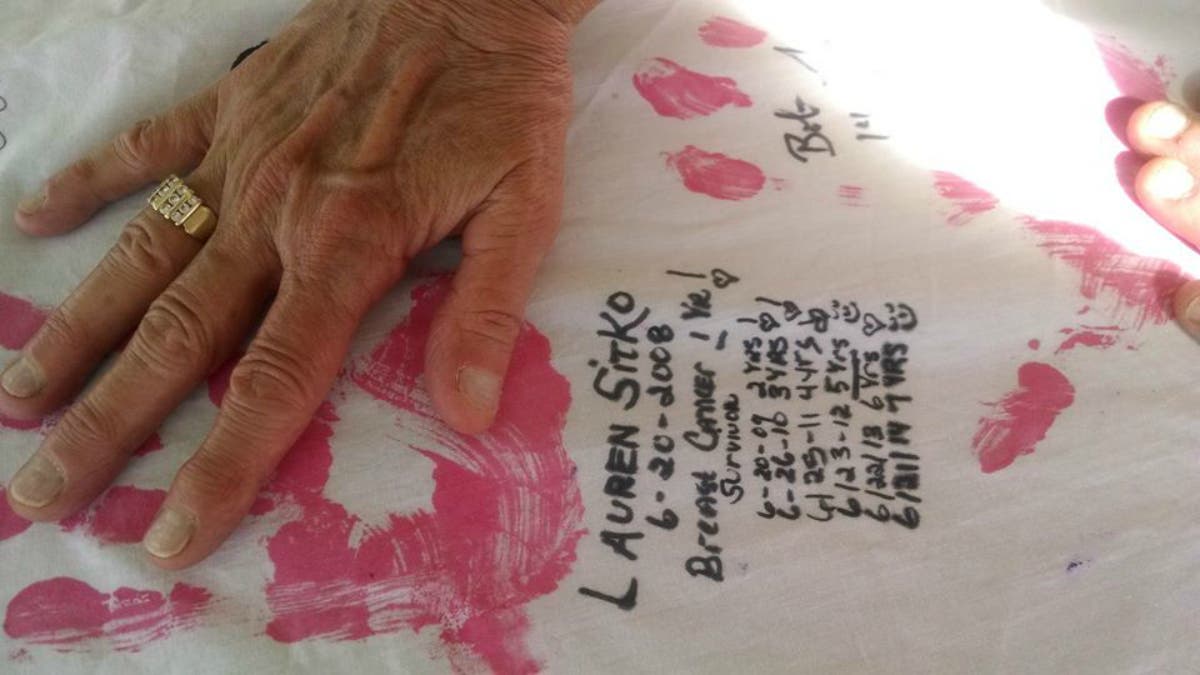 LAUREN SITKO
6-20-2008
Breast Cancer 1 YR!
Survivor
6-20-09 2 YRS!
6-26-10 3 YRS!
6/25-11 4 YRS
6/23-12 5 Yrs
6/22/13 6 Yrs
6/21/14 7 YRS